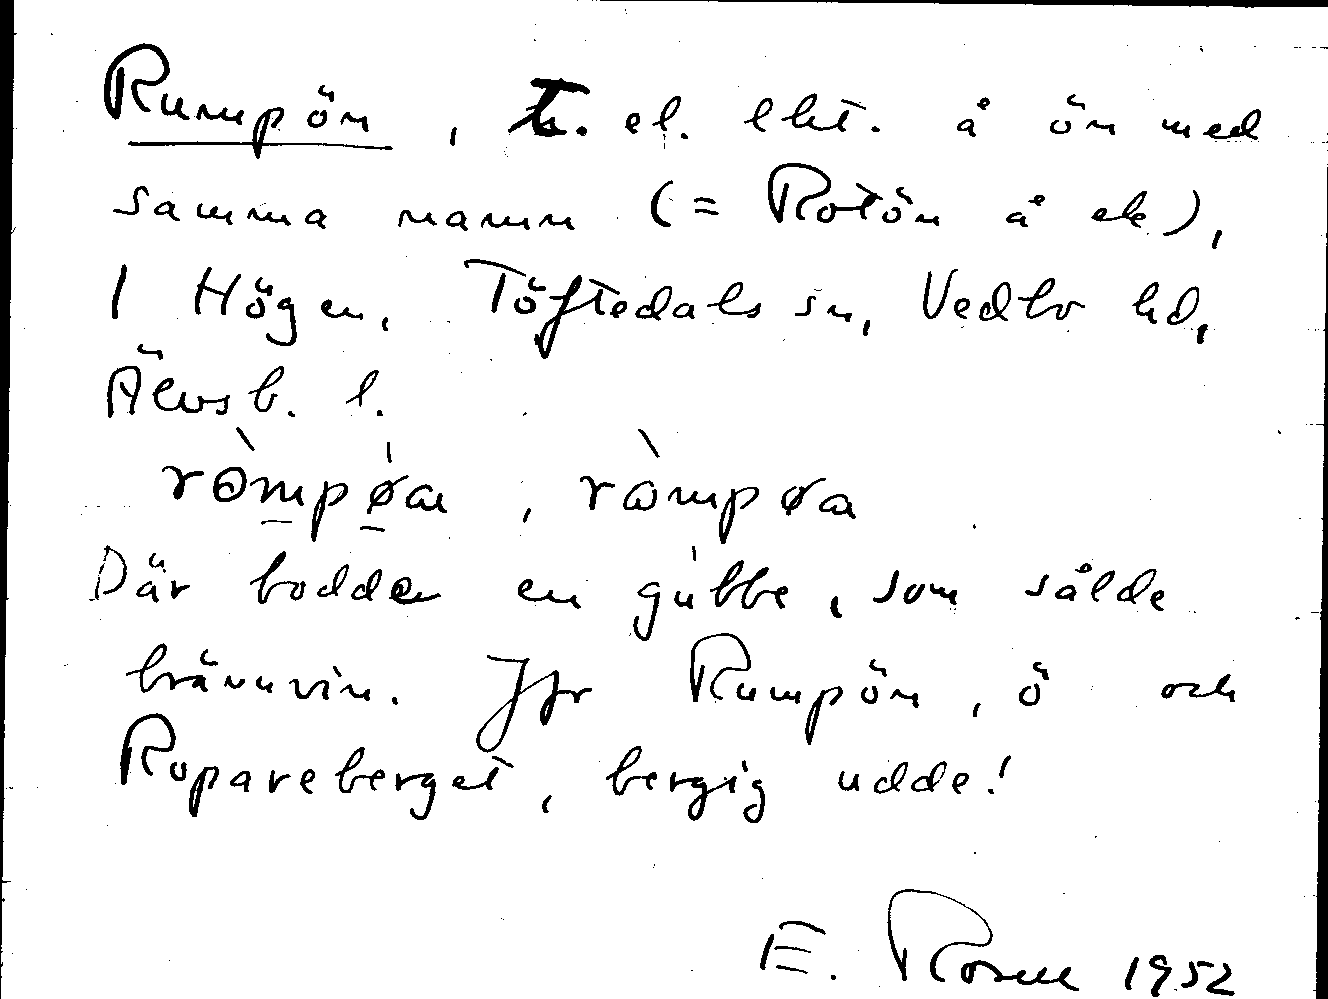 Rumpön, t. el. lht. å ön med
samma namn (= Rotön å ek),
1 Högen, Töftedals sn, Vedbo hd,
Älvsb. l.
ròmpø̀n, ròmpøn
Där bodde en gubbe, som sålde
brännvin. Jfr Rumpön, ö och
Ropareberget, bergig udde!
E. Rosell 1952